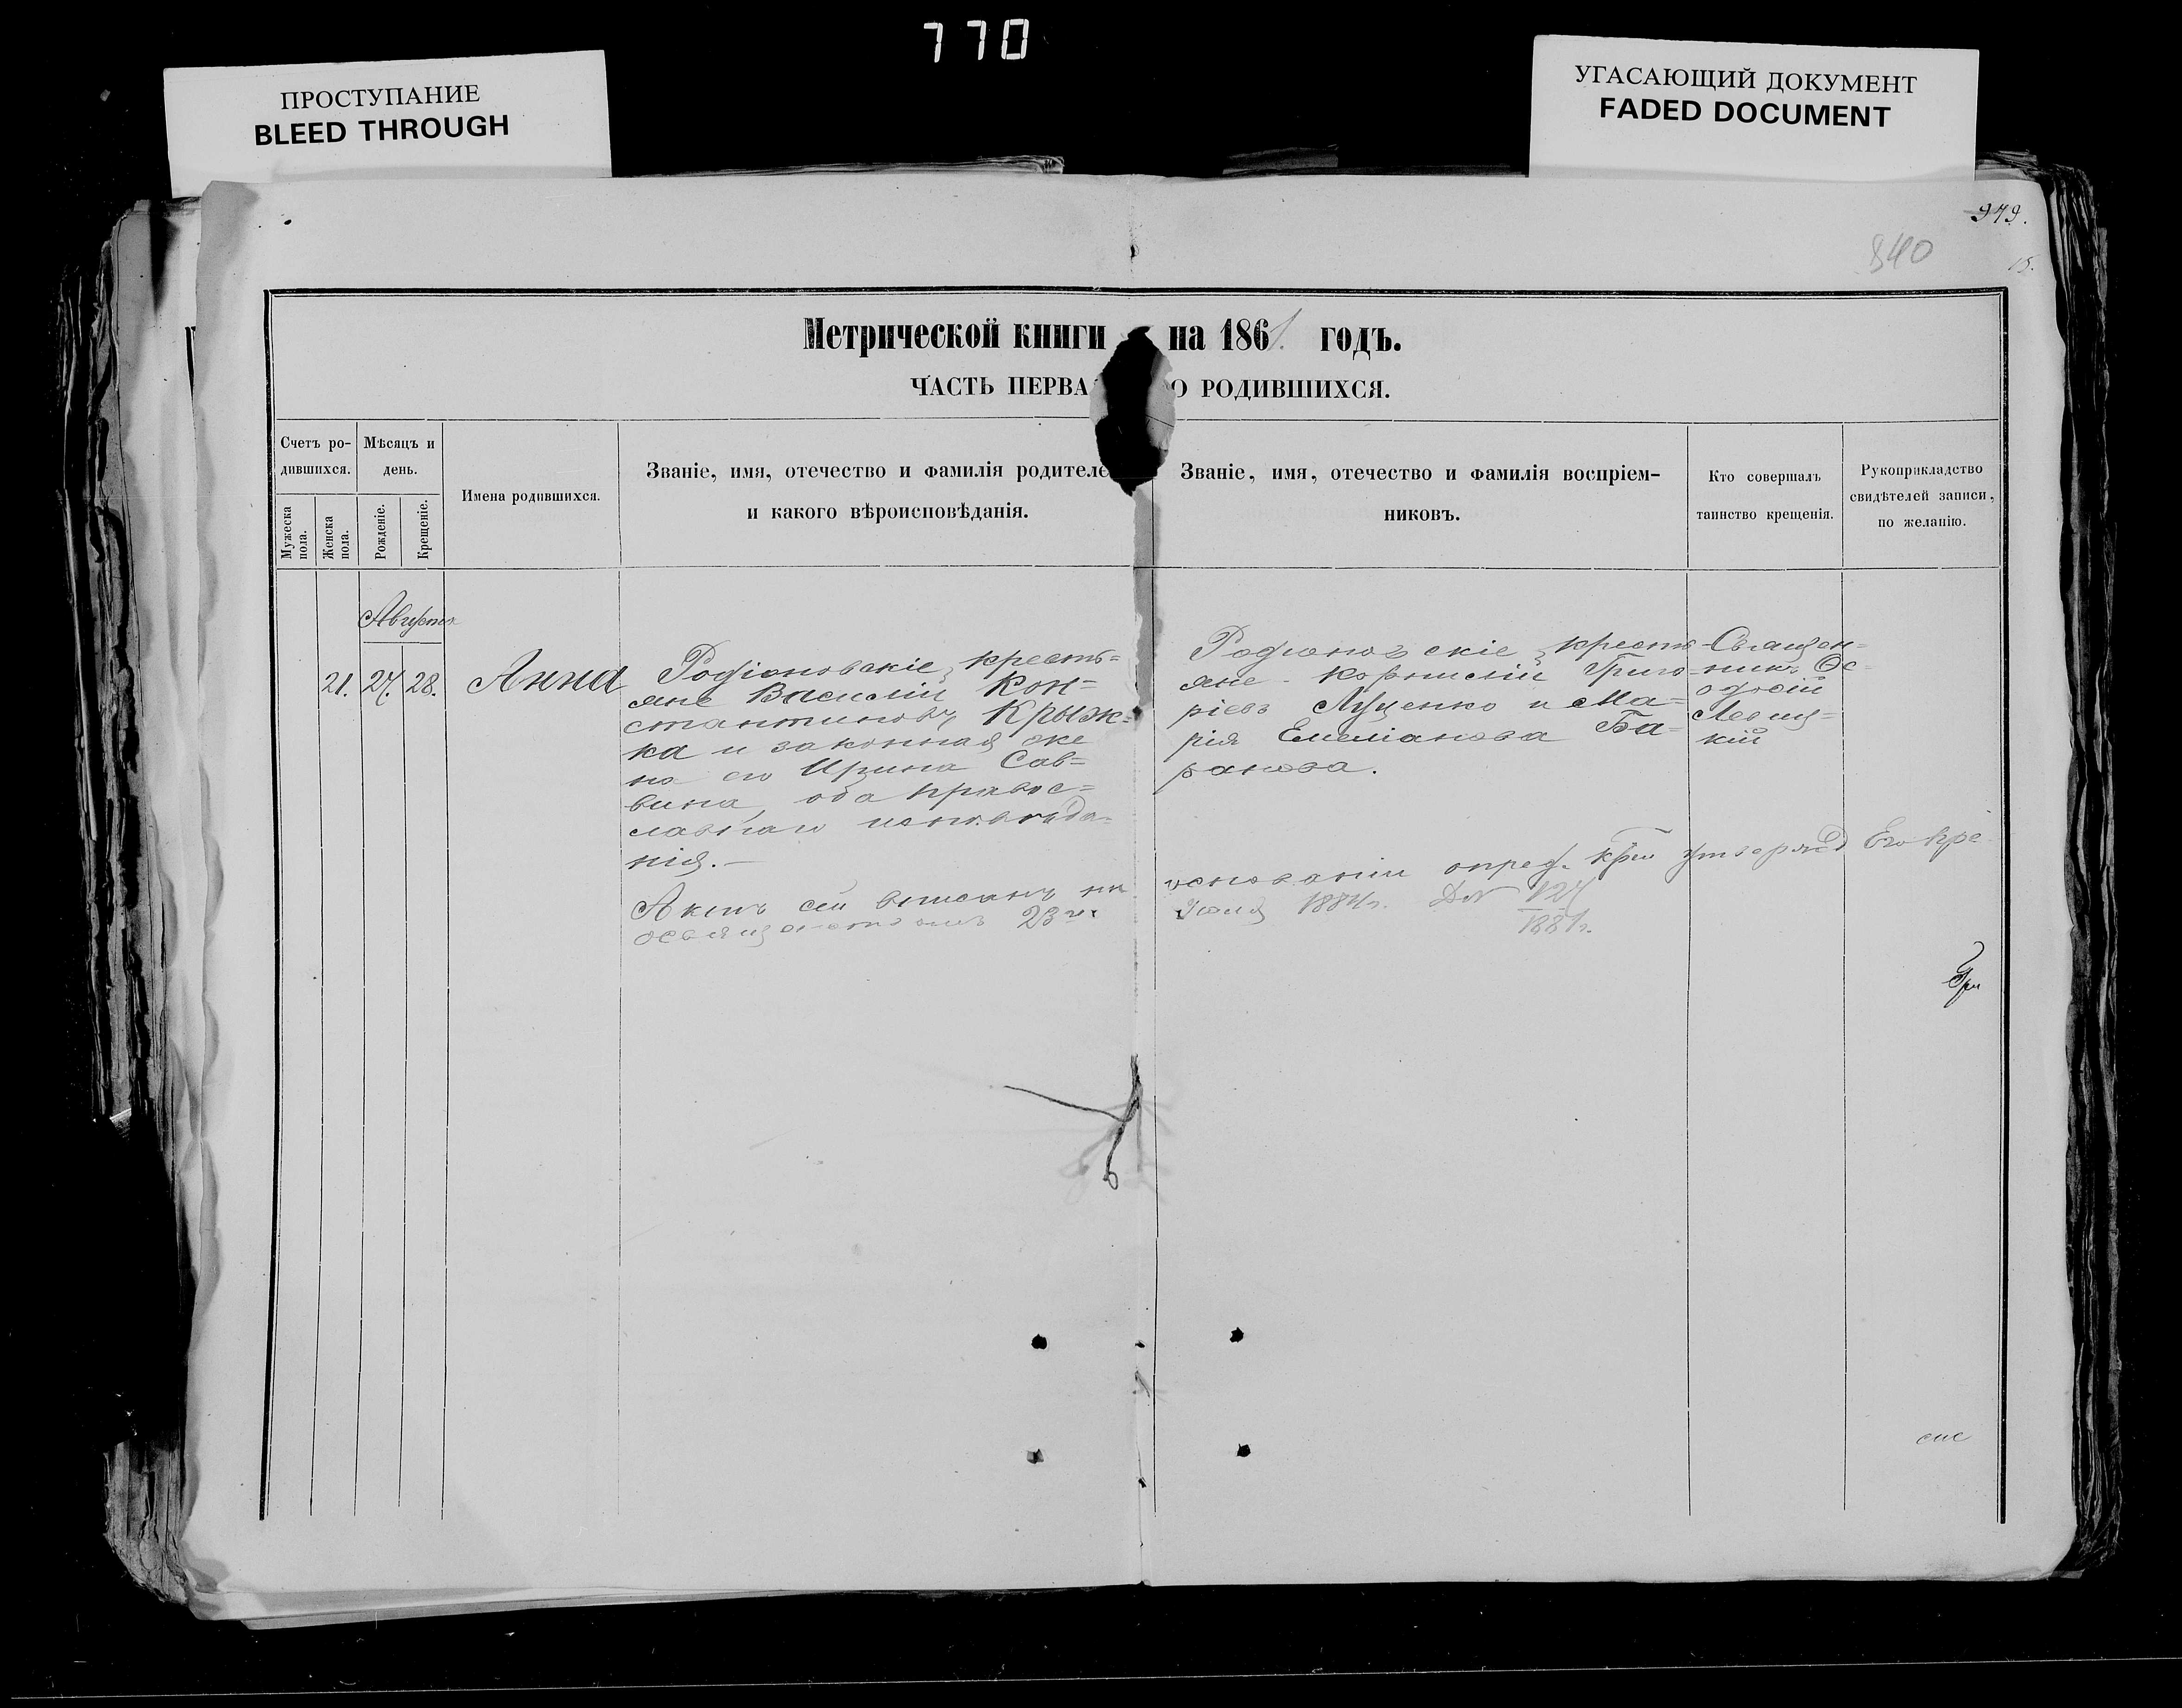 770
ПРОСТУПАНИЕ
BLEED THROUGH
УГАСАЮЩИЙ ДОКУМЕНТ
FADED DOCUMENT
979.
840
15.
Метрической книги на 1861. годъ.
ЧАСТЬ ПЕРВА О РОДИВШИХСЯ.
Счетъ ро-
дившихся.
Мужеска
пола.
Женска
пола.
Мѣсяцъ и
день.
Рожденіе.
Крещеніе.
Имена родившихся.
Званіе, имя, отечество и фамилія родителе
и какого вѣроисповѣданія.
Званіе, имя, отечество и фамилія воспріем-
никовъ.
Кто совершалъ
таинство крещенія.
Рукоприкладство
свидѣтелей записи,
по желанію.
Августа
21. 27. 28. Анна
Родіоновскіе кресть=
яне Василій Кон=
стантиновъ Крыж=
ка и законная же
на его Ирина Сав=
вина, оба правос=
лавнаго исповѣда=
нія.—
Родіоновскіе кресть
яне - Корнилій Григо
ріевъ Луценко и Ма=
рія Емеліанова Ба=
ранова.
Священ=
никъ Ѳе=
одосій
Левиц=
кій
Актъ сей вписанъ на основаніи опред. утвержд Его Пре
освященствомъ 23го Іюля 1881г. № 127
1881г.
При
сис